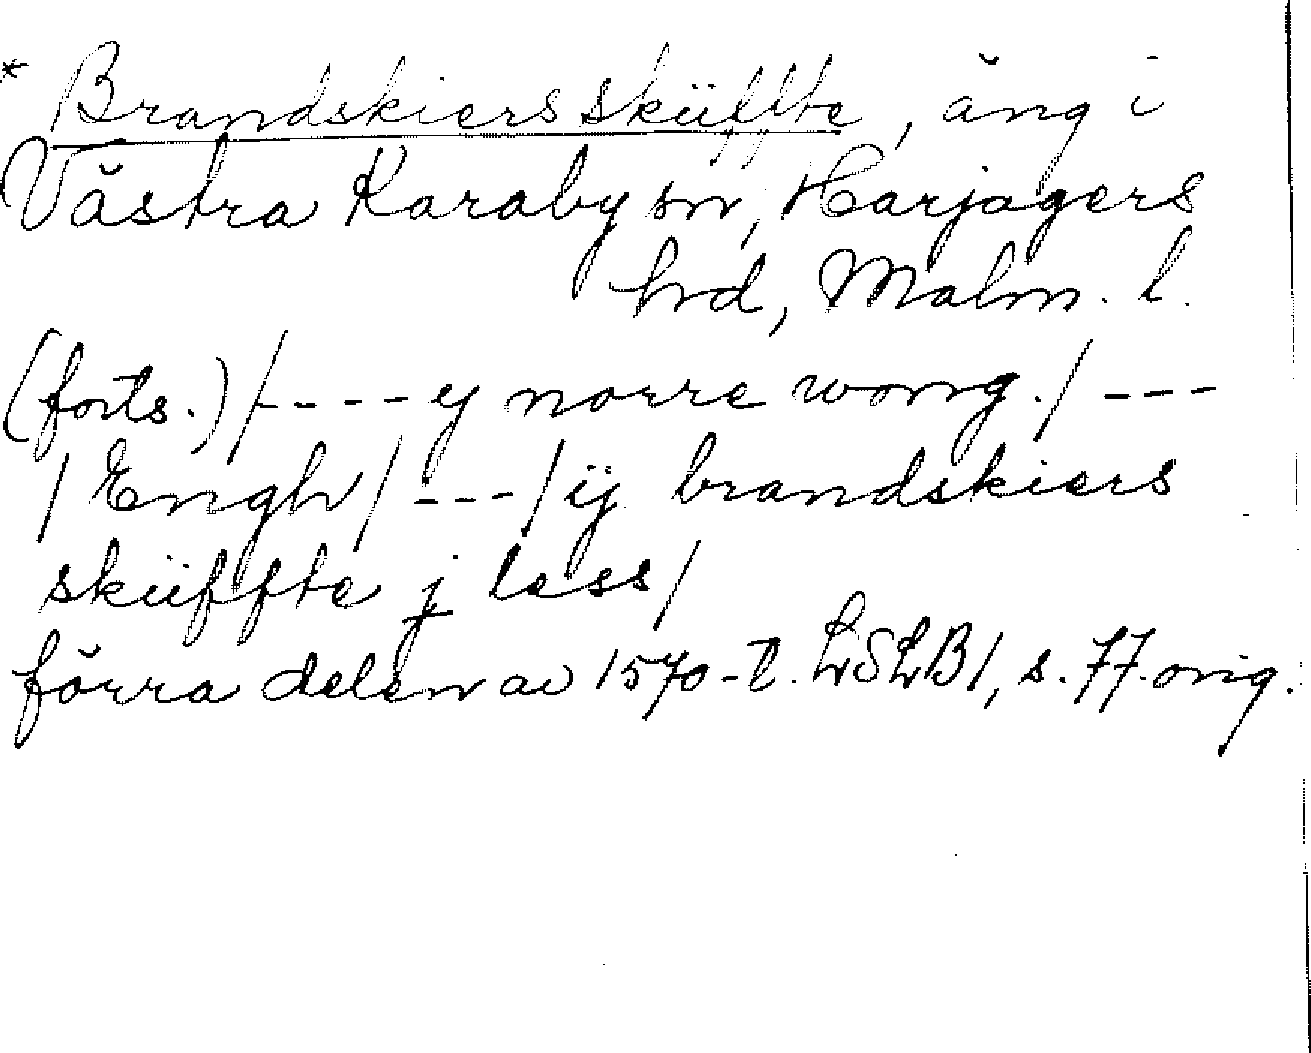 * Brandskiersskuͤffte, äng i
Västra Karaby sn, Harjagers
hrd, Malm. l.
(forts.) /---- y norre wong. / ---
/ Engh / --- / ij brandskiers
skuͤffte j less /
förra delen av 1570-t. LSLB 1, s. 77. orig.